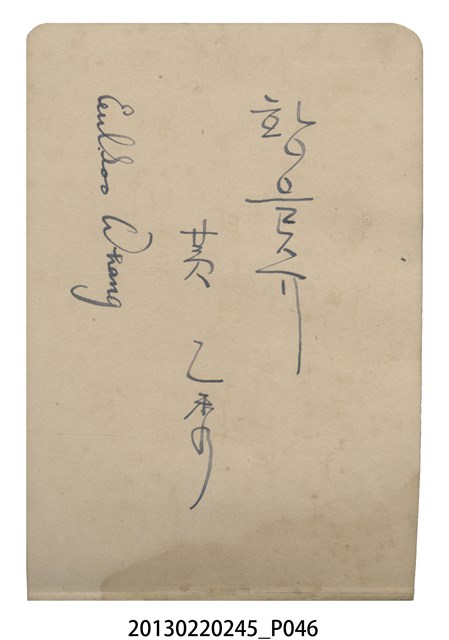 황을수
黃乙秀
Eulsoo Whang
20130220245_P046